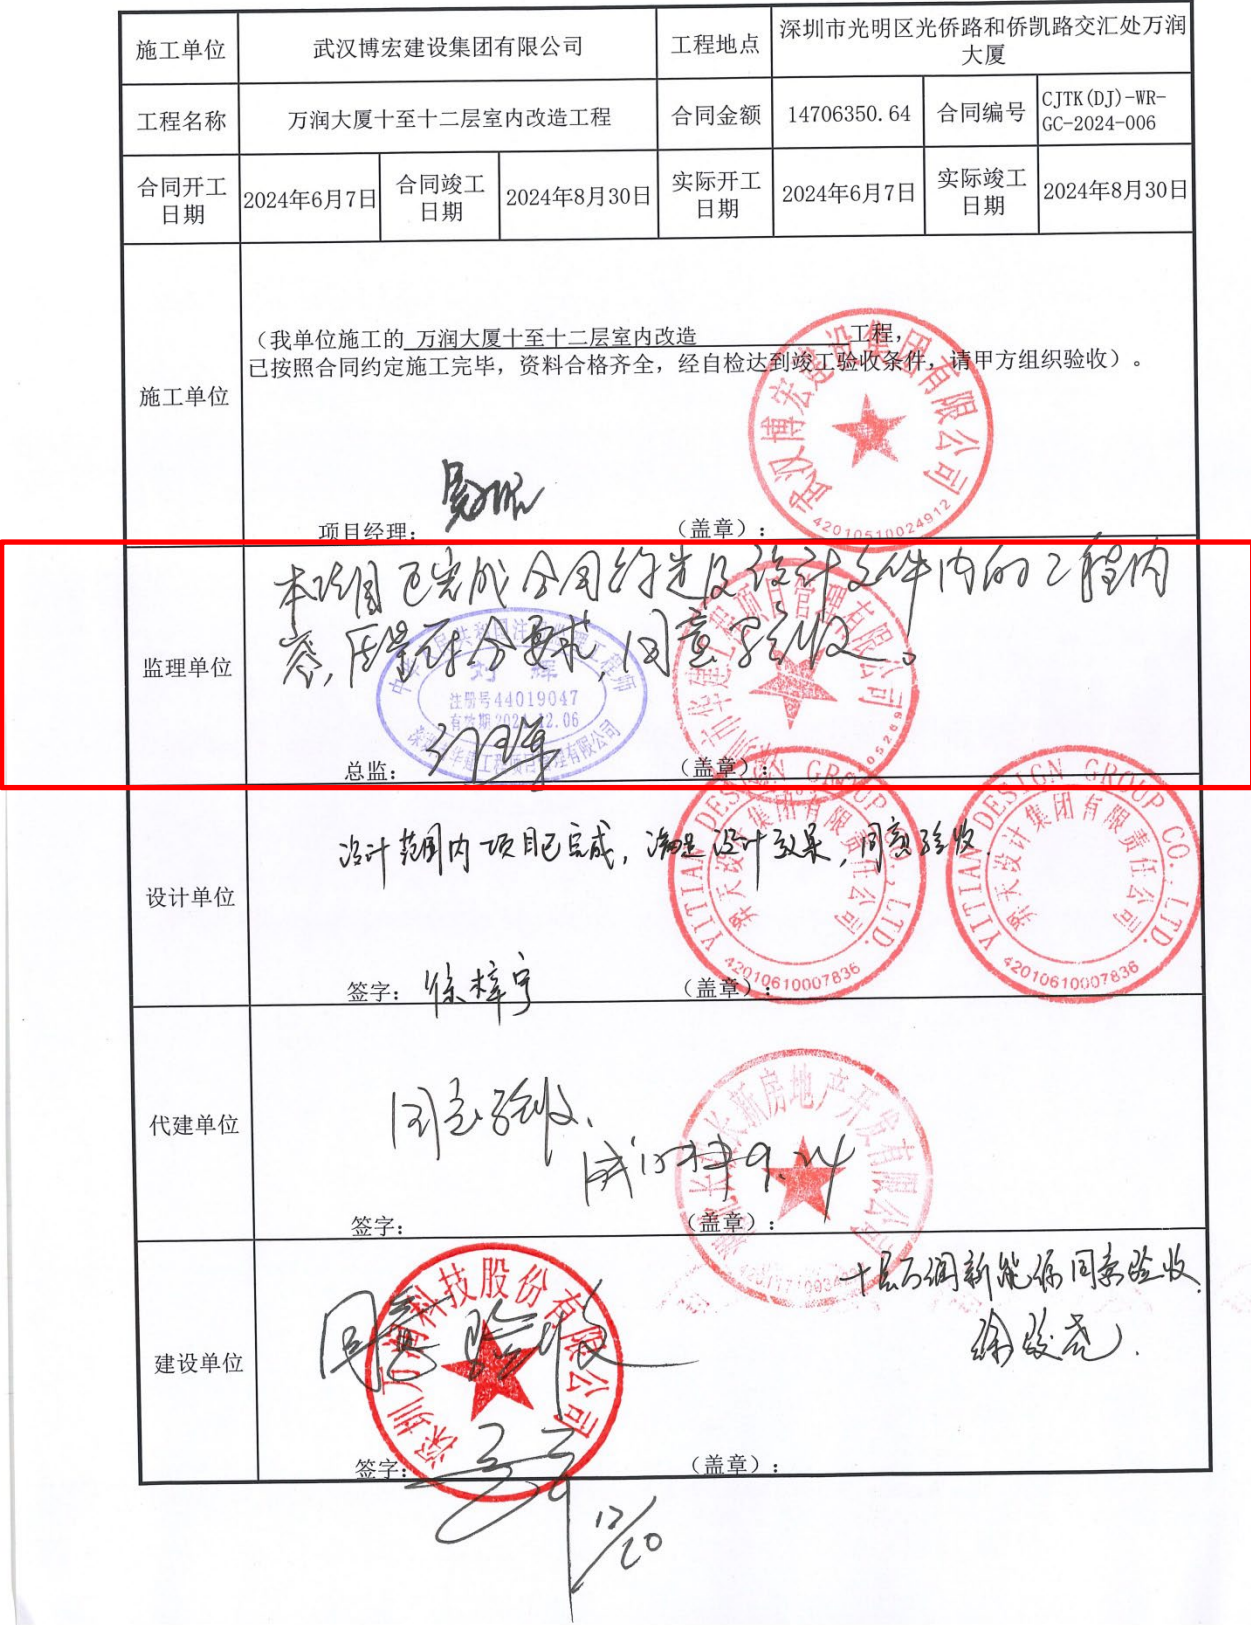 施工单位 武汉博宏建设集团有限公司 工程地点 深圳市光明区光侨路和侨凯路交汇处万润
大厦
工程名称 万润大厦十至十二层室内改造工程 合同金额 14706350.64 合同编号 CJTK(DJ)-WR-
GC-2024-006
合同开工
日期 2024年6月7日 合同竣工
日期 2024年8月30日 实际开工
日期 2024年6月7日 实际竣工
日期 2024年8月30日
施工单位
(我单位施工的 万润大厦十至十二层室内改造 工程,
已按照合同约定施工完毕，资料合格齐全，经自检达到竣工验收条件，请甲方组织验收）。
武汉博宏建设集团有限公司
42010510024912
项目经理:
(盖章):
监理单位
本项目已完成合同约定及设计文件内的工程内
容，质量符合要求，同意验收。
中华人民共和国注册监理工程师
刘辉
注册号44019047
华建工程项目管理有限公司
总监: 刘辉
(盖章):
设计单位
设计范围内项目已完成，满足设计效果，同意验收.
YITIAN DESIGN GROUP CO.,LTD.
奕天设计集团有限责任公司
42010610007836
YITIAN DESIGN GROUP CO.,LTD.
奕天设计集团有限责任公司
42010610007836
签字: 徐梓宁
(盖章):
代建单位
同意验收.
9.24
长新房地产开发有限公司
签字:
(盖章):
建设单位
同意验收
深圳万润科技股份有限公司
十层万润新能源同意验收.
签字:
(盖章):
12/20